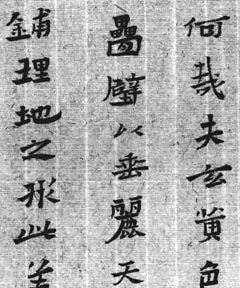 何哉夫玄黄色
疊璧以垂麗天
鋪理地之形此盖